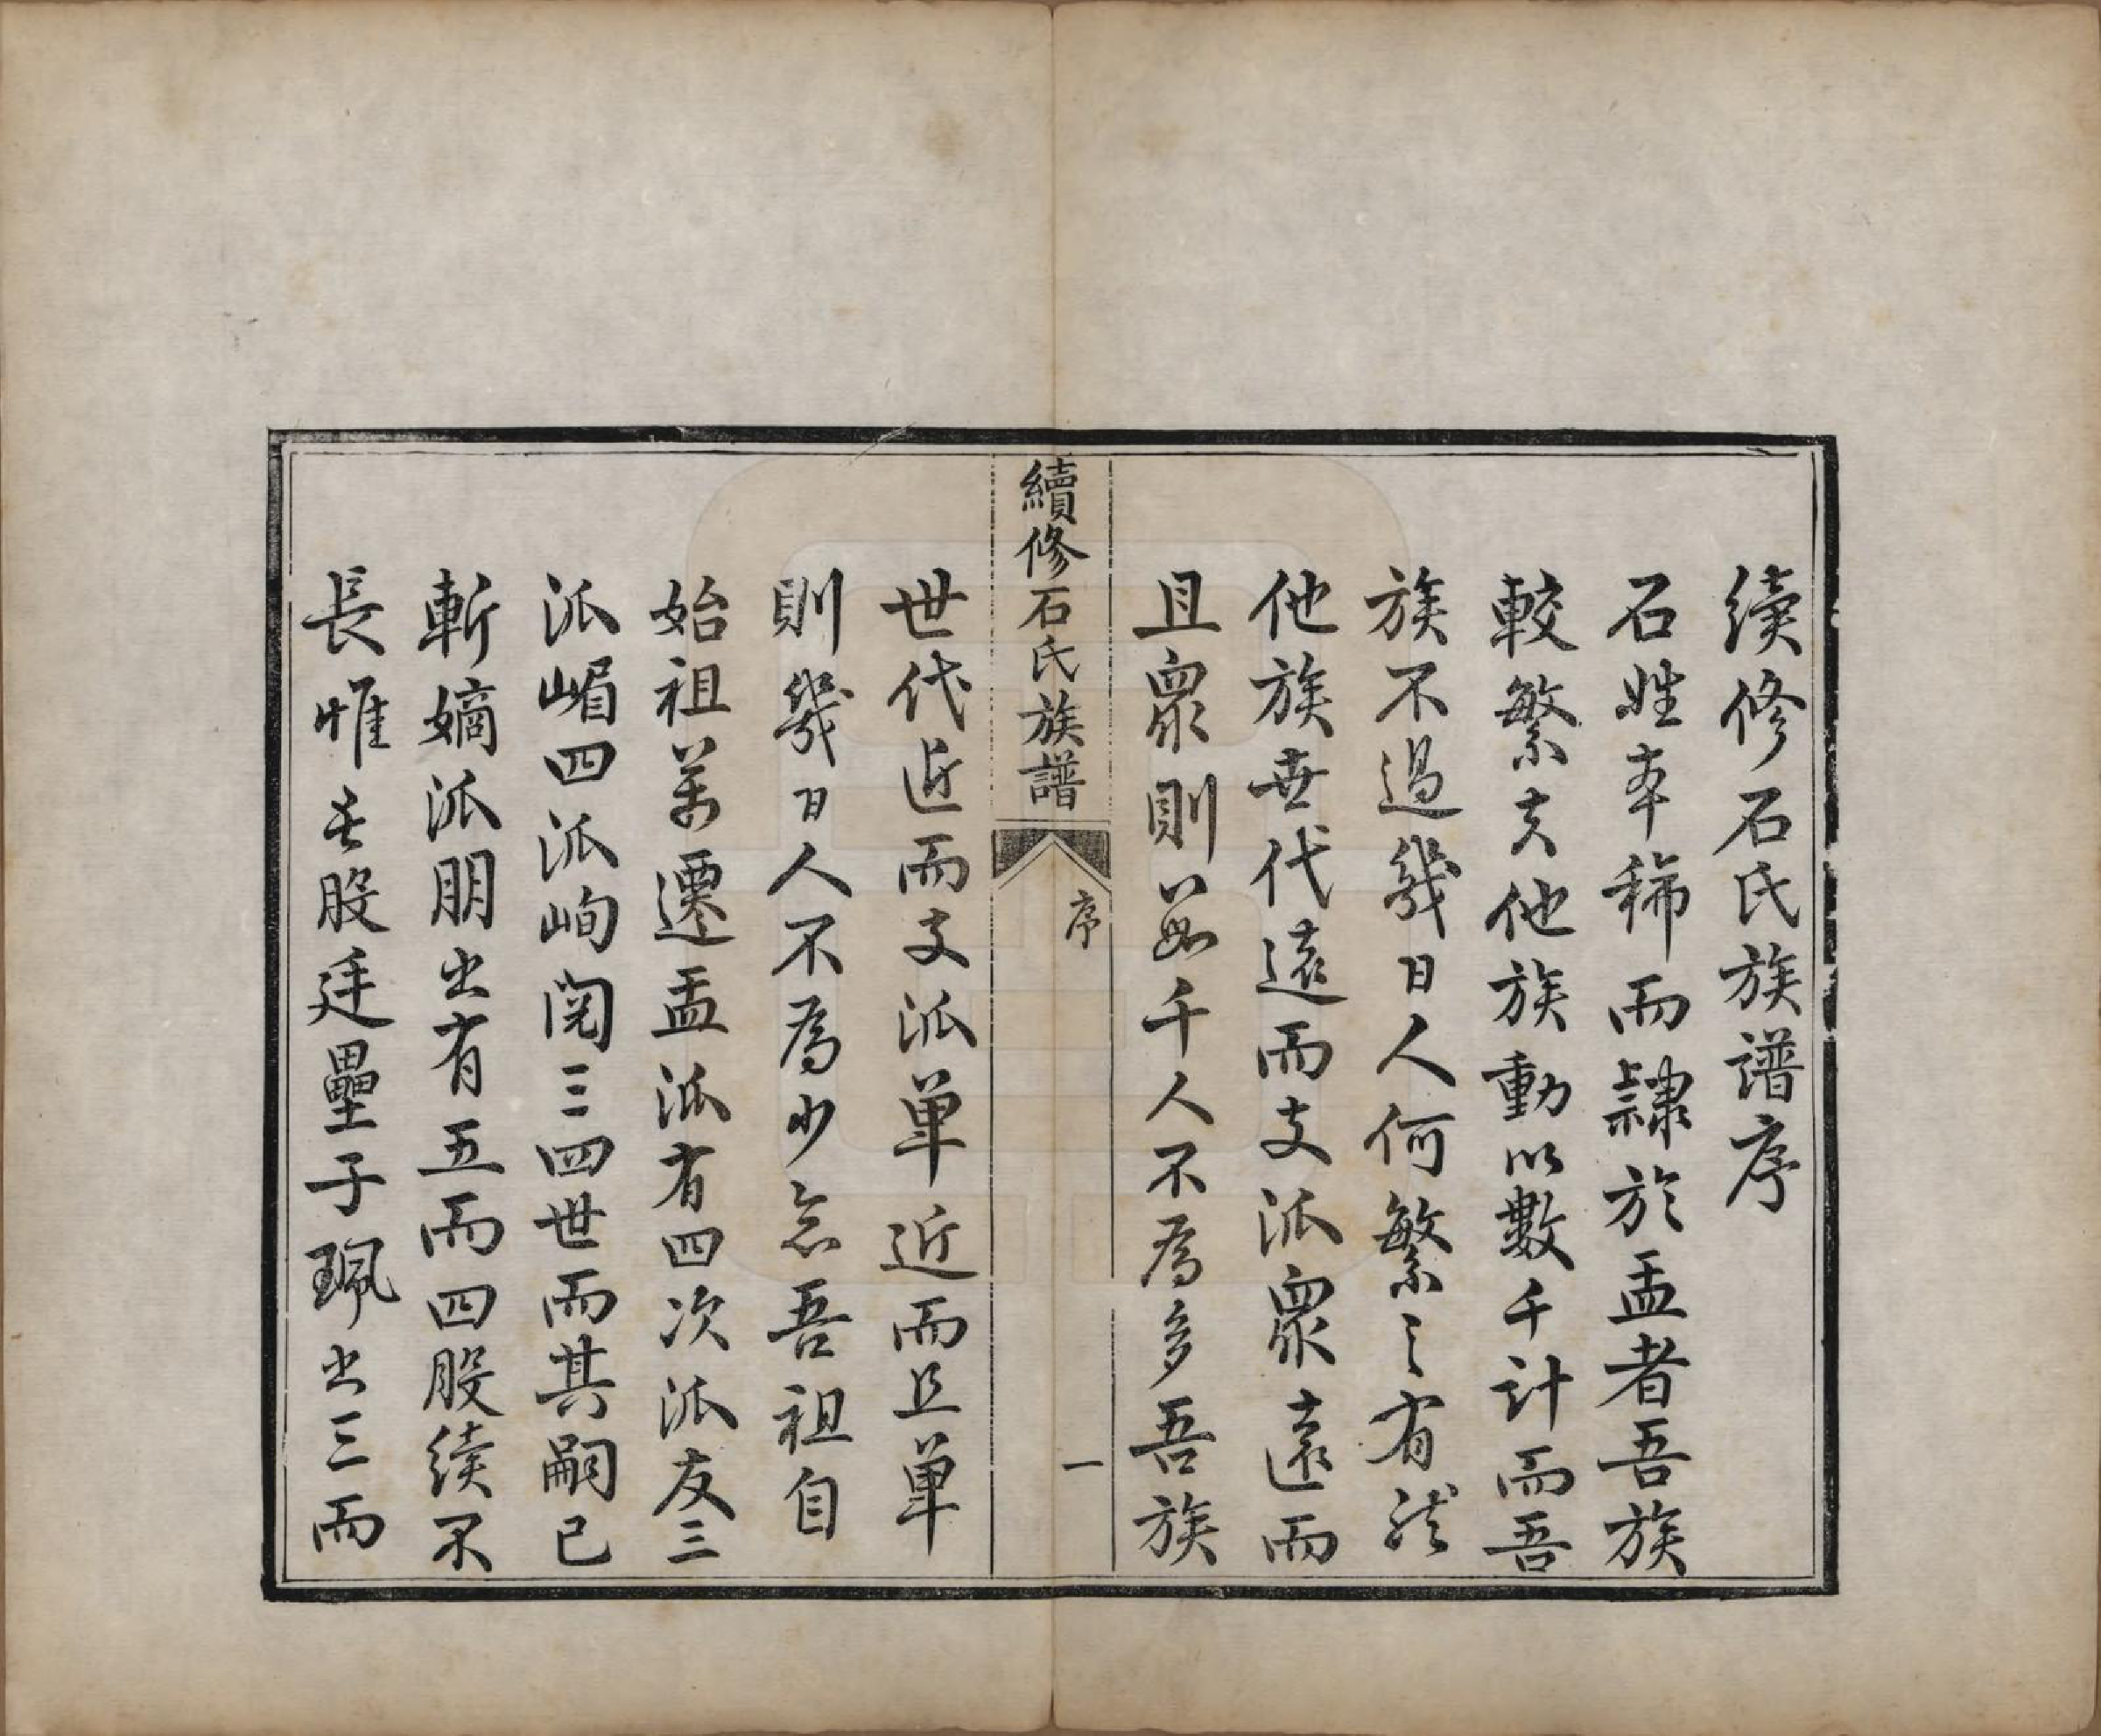 續修石氏族譜序
石姓本稀而隸於盂者吾族
較繁夫他族動以數千計而吾
族不過幾百人何繁之有然
他族世代遠而支派眾遠而
且眾則數千人不為多吾族
續修石氏族譜
序
一
世代近而支派單近而且單
則幾百人不為少念吾祖自
始祖萬遷盂派有四次派友三
派嵋四派峋閱三四世而其嗣已
斬嫡派朋出有五而四股續不
長惟長股廷壘子珮出三而